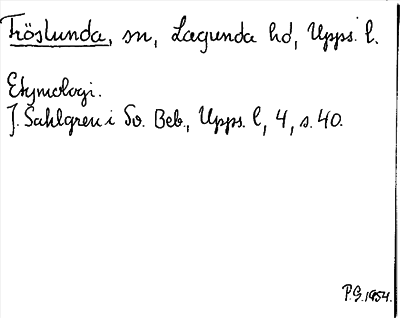 Fröslunda, sn, Lagunda hd, Upps. l.
Etymologi.
J. Sahlgren i Sv. Beb., Upps. l, 4, s. 40.
P.G. 1954.